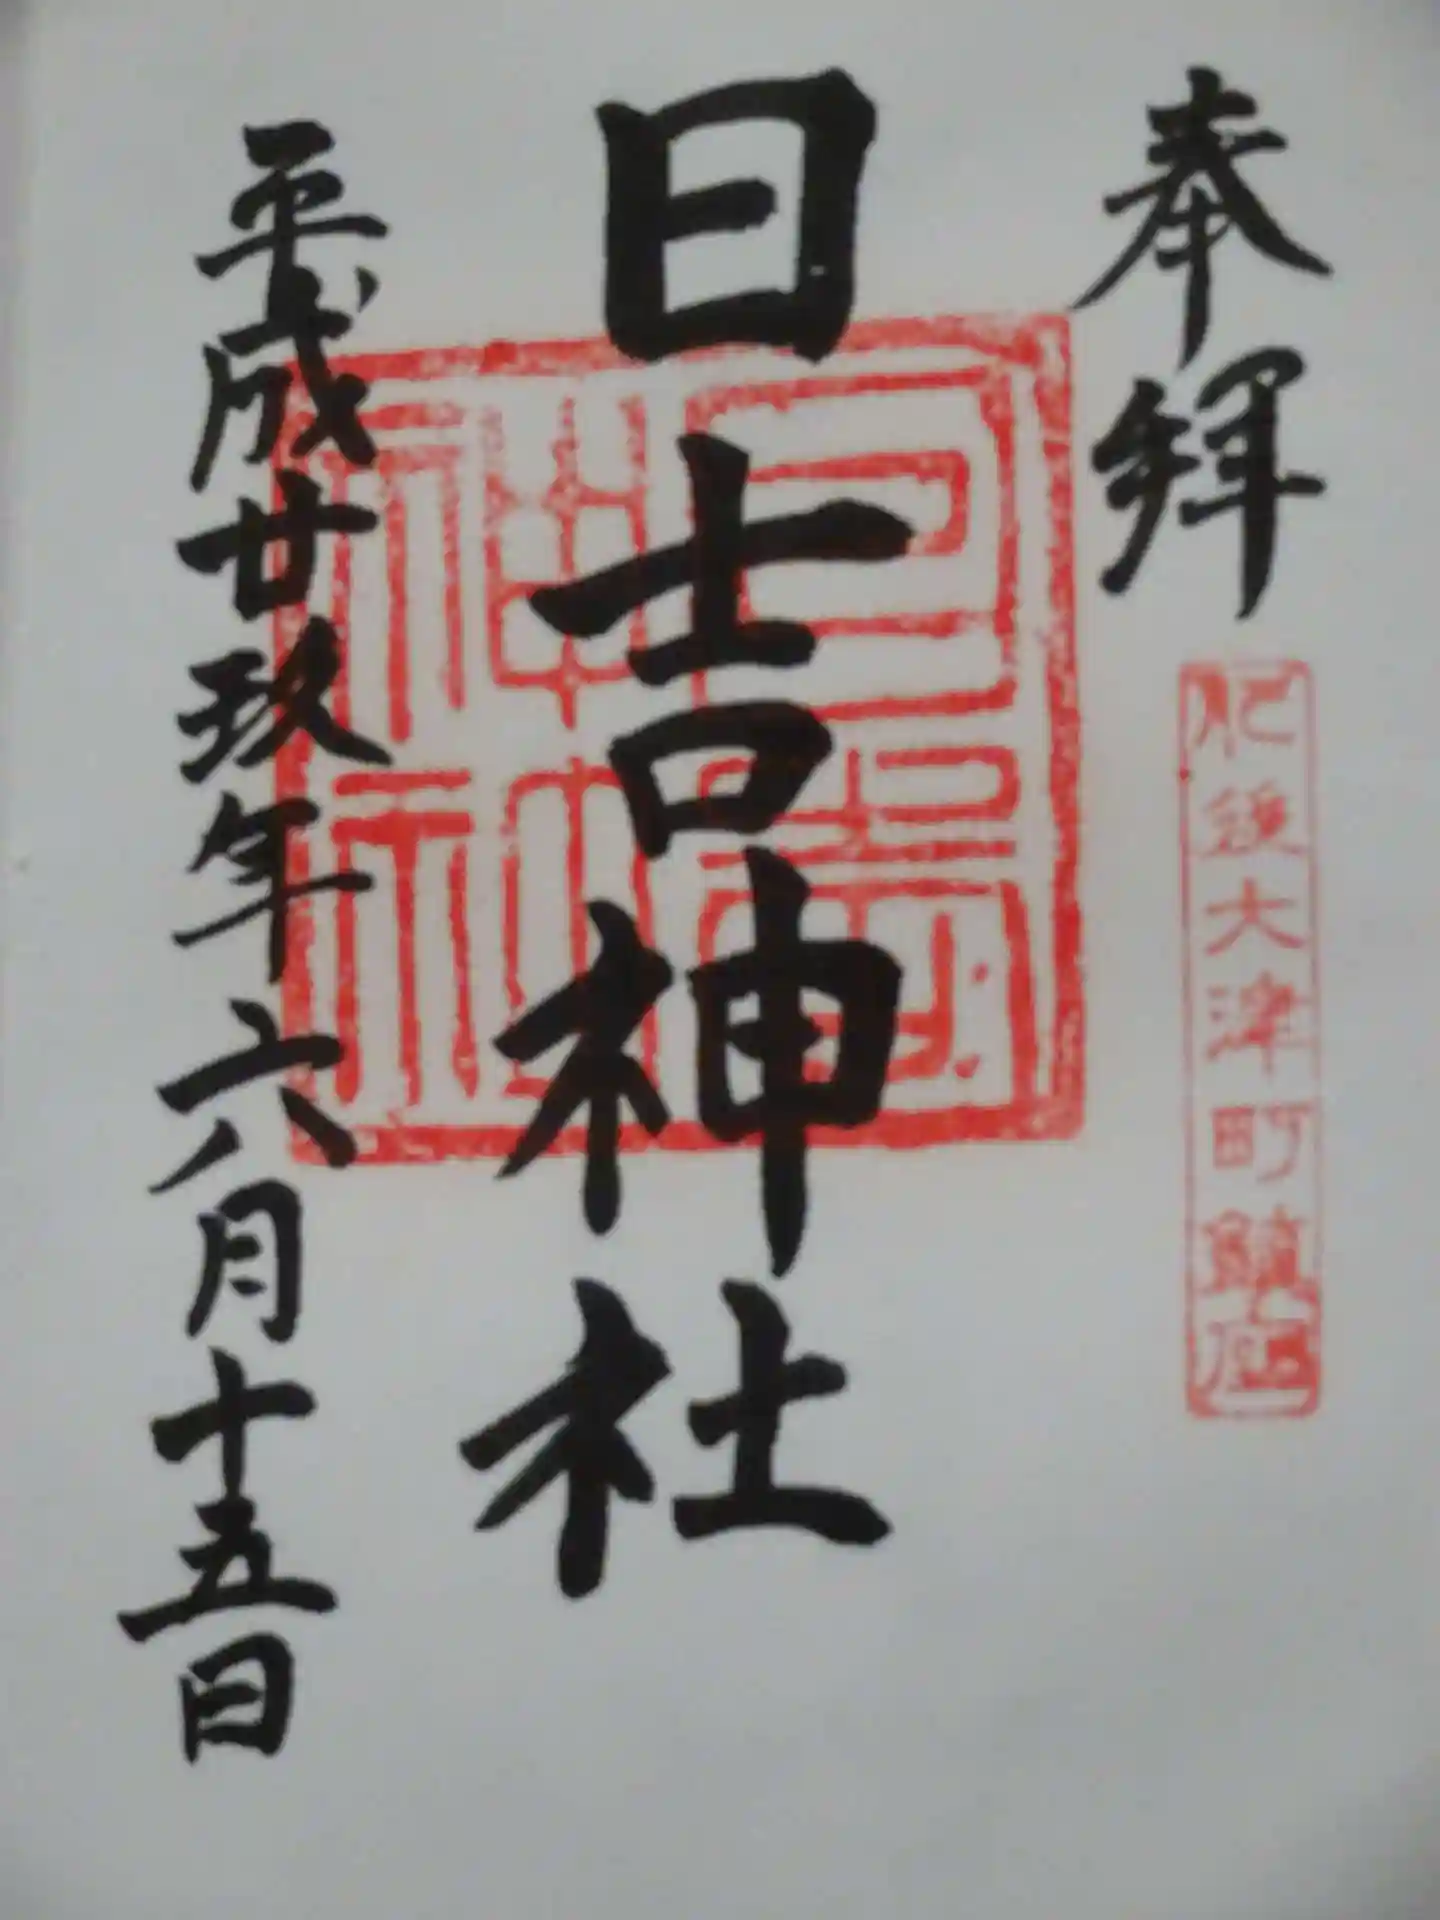 奉拝
肥後大津町鎮座
日吉神社
平成廿玖年六月十五日